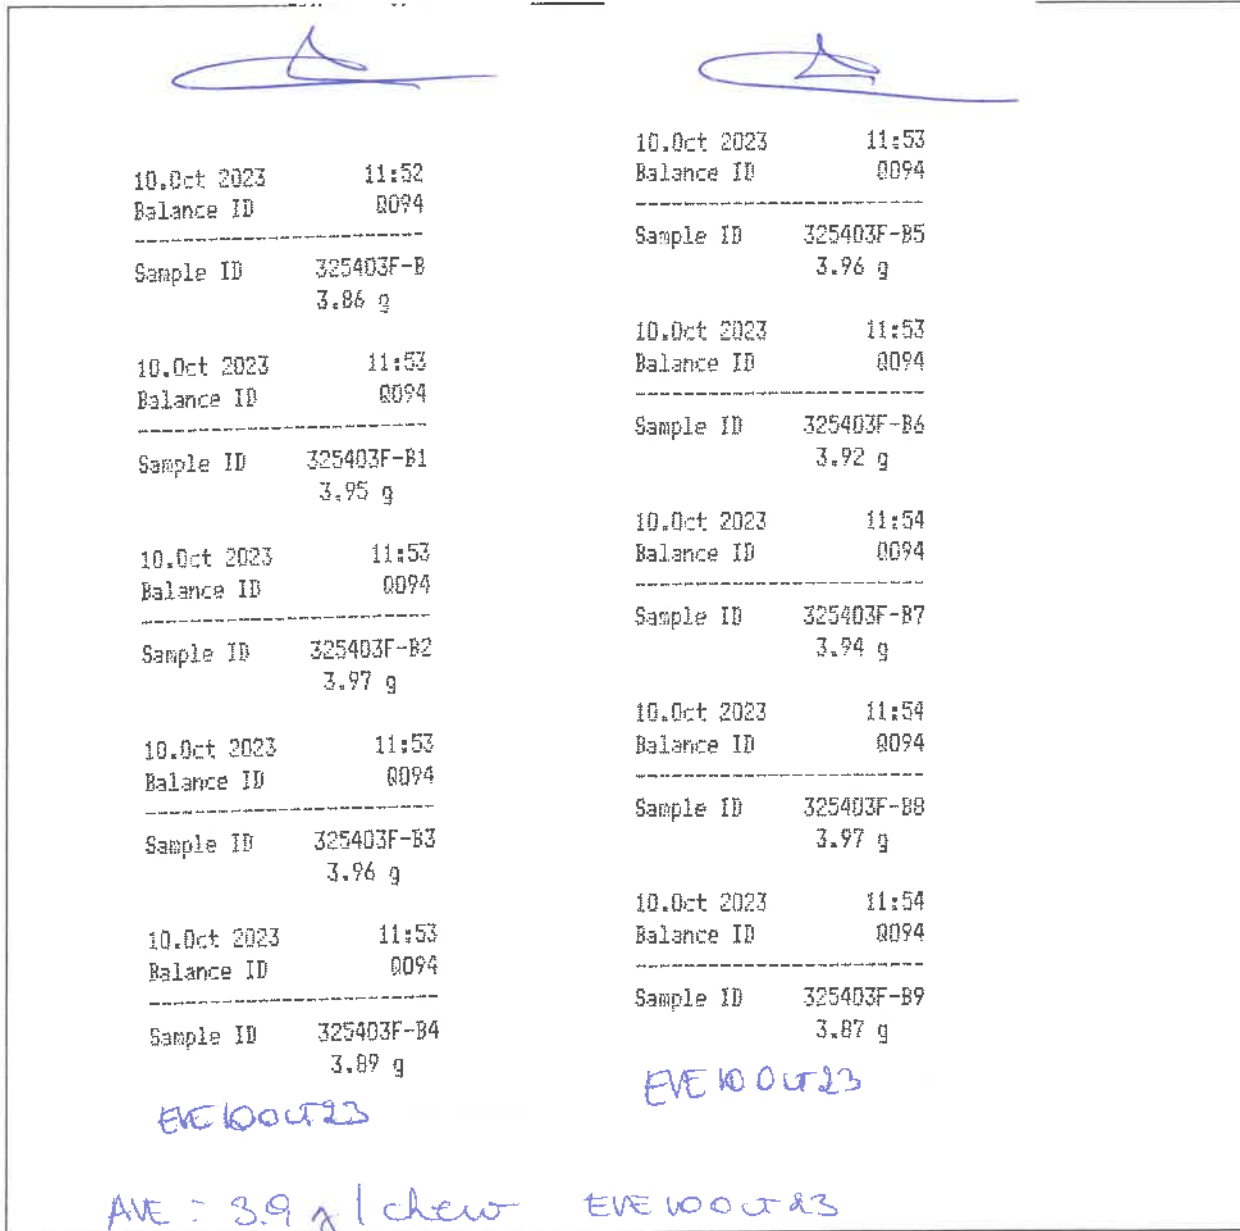 10.Oct 2023 11:52
Balance ID Q094
Sample ID 325403F-B
3.86 g
10.Oct 2023 11:53
Balance ID Q094
Sample ID 325403F-B1
3.95 g
10.Oct 2023 11:53
Balance ID Q094
Sample ID 325403F-B2
3.97 g
10.Oct 2023 11:53
Balance ID Q094
Sample ID 325403F-B3
3.96 g
10.Oct 2023 11:53
Balance ID Q094
Sample ID 325403F-B4
3.89 g
EVE 10 Oct 23
10.Oct 2023 11:53
Balance ID Q094
Sample ID 325403F-B5
3.96 g
10.Oct 2023 11:53
Balance ID Q094
Sample ID 325403F-B6
3.92 g
10.Oct 2023 11:54
Balance ID Q094
Sample ID 325403F-B7
3.94 g
10.Oct 2023 11:54
Balance ID Q094
Sample ID 325403F-B8
3.97 g
10.Oct 2023 11:54
Balance ID Q094
Sample ID 325403F-B9
3.87 g
EVE 10 Oct 23
AVE : 3.9 g / chew EVE 10 Oct 23